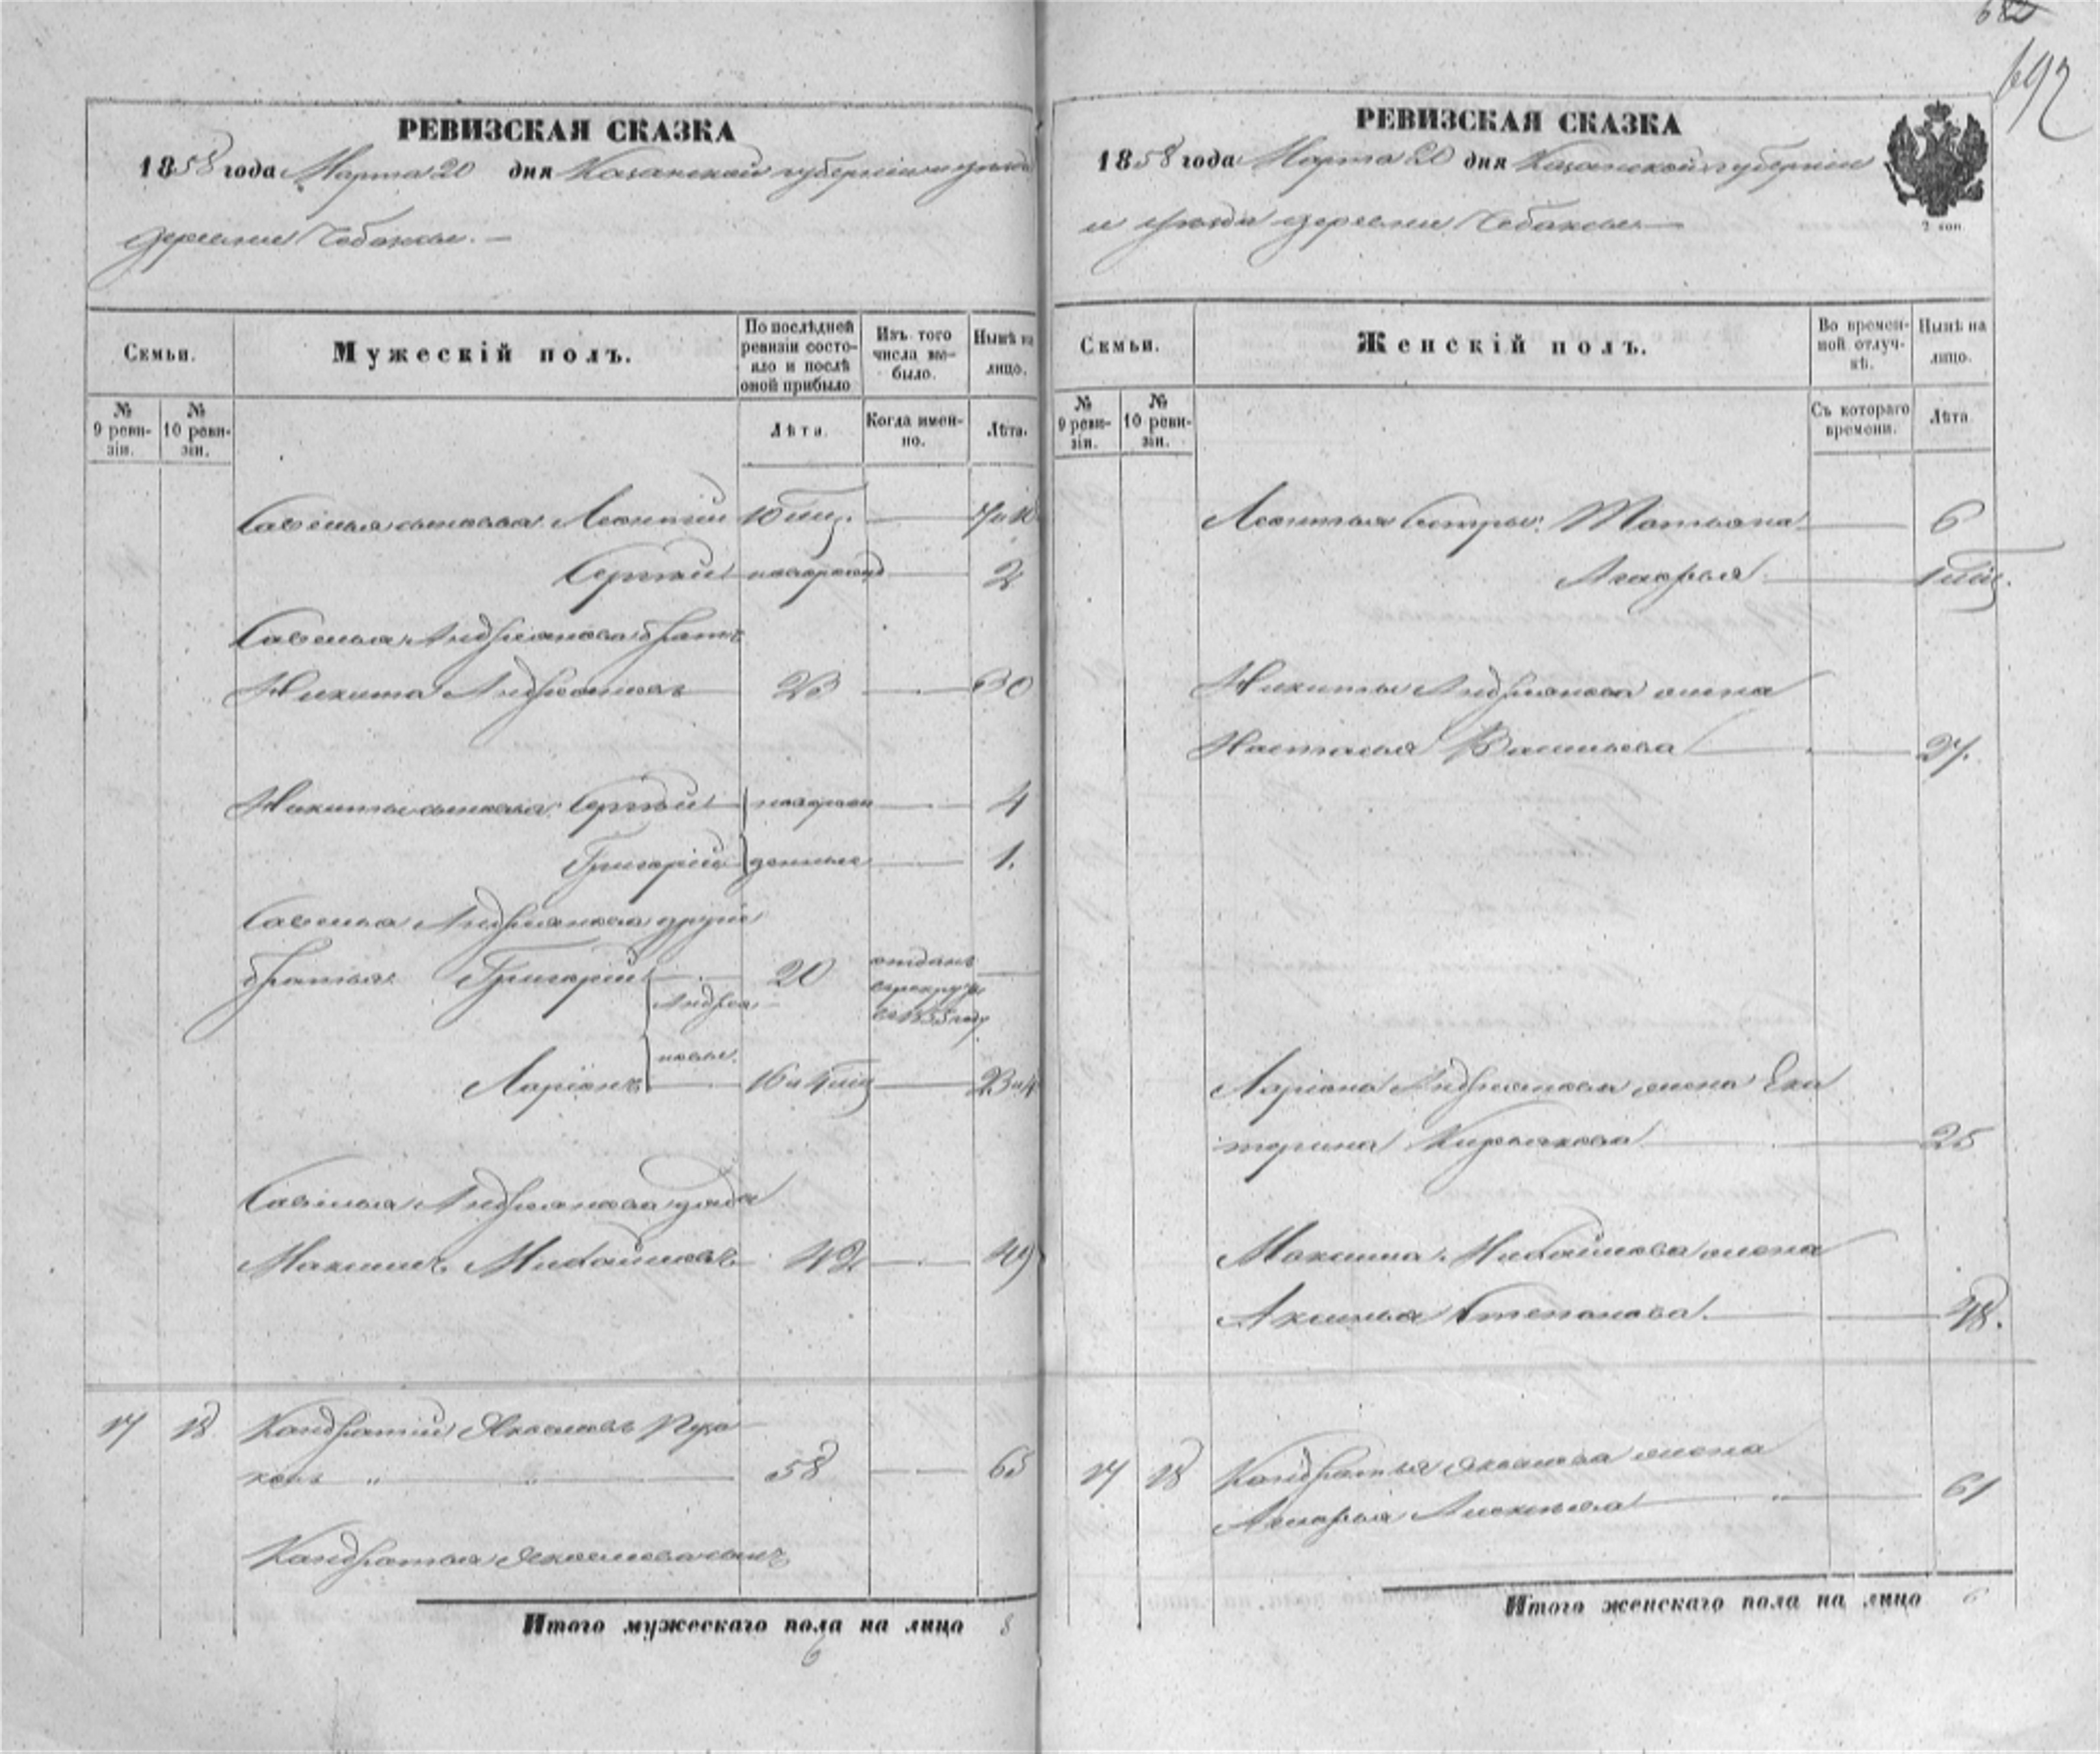 692
РЕВИЗСКАЯ СКАЗКА
1858 года Марта 20 дня Казанской губернии и уезда
деревни Чебаксы. —
Семьи.
Мужескій полъ.
По послѣдней ревизіи состояло и послѣ оной прибыло
Изъ того числа выбыло.
Нынѣ на лицо.
№ 9 ревизіи.
№ 10 ревизіи.
Лѣта.
Когда именно.
Лѣта.
Савелья сыновья: Леонтий 10 мѣс. — 7 и 10
Сергѣй новорожд — 2
Савелья Андреянова братъ
Никита Андреяновъ 23 — 30
Никиты сыновья: Сергѣй новорож — 4
Григорій денные — 1.
Савелья Андреянова другіе
братья Григорій 20 отданъ
Андреа- в рекруты
в 1855 году
новы.
Ларіонъ 16 и 4 мѣс — 23 и 4
Савелья Андреянова дядя
Максимъ Михайловъ 42 — 49
17 18 Кандратий Яковлевъ Пуза
ковъ " " 58 — 65
Кандратья Яковлева сынъ
Итого мужескаго пола на лицо 8
6
РЕВИЗСКАЯ СКАЗКА
1858 года Марта 20 дня Казанской губерніи
и уезда деревни Чебаксы —
2 коп
Семьи.
Женскій полъ.
Во временной отлучкѣ.
Нынѣ на лицо.
№ 9 ревизіи.
№ 10 ревизіи.
Съ котораго времени.
Лѣта
Леонтья Сестры: Татьяна — 6
Агафья — 1 мѣс.
Никиты Андреянова жена
Настасья Васильева — 27.
Ларіона Андреянова жена Ека
терина Кирьякова — 25
Максима Михайлова жена
Аксинья Степанова. — 48.
17 18 Кандратья Яковлева жена
Агафья Алексѣева — 61
Итого женскаго пола на лицо 6